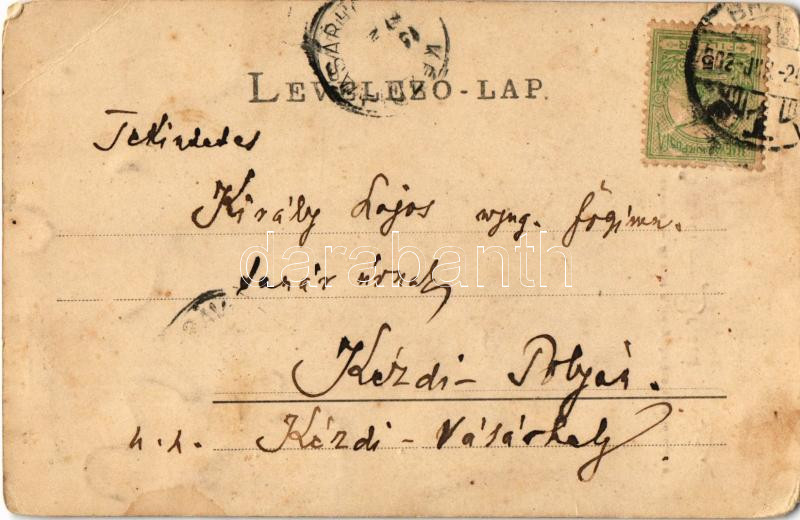 LEVELEZŐ-LAP.
Tekintetes
Király Lajos nyug. főgimn.
tanár úrnak
Kézdi-Polyán.
u. p. Kézdi-Vásárhely
darabanth